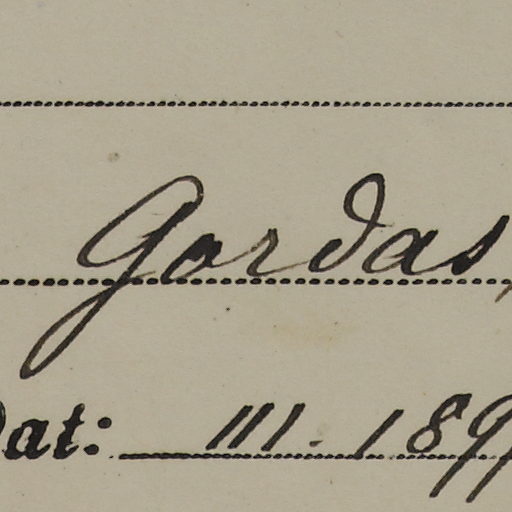 Gordas,
Dat: III. 189